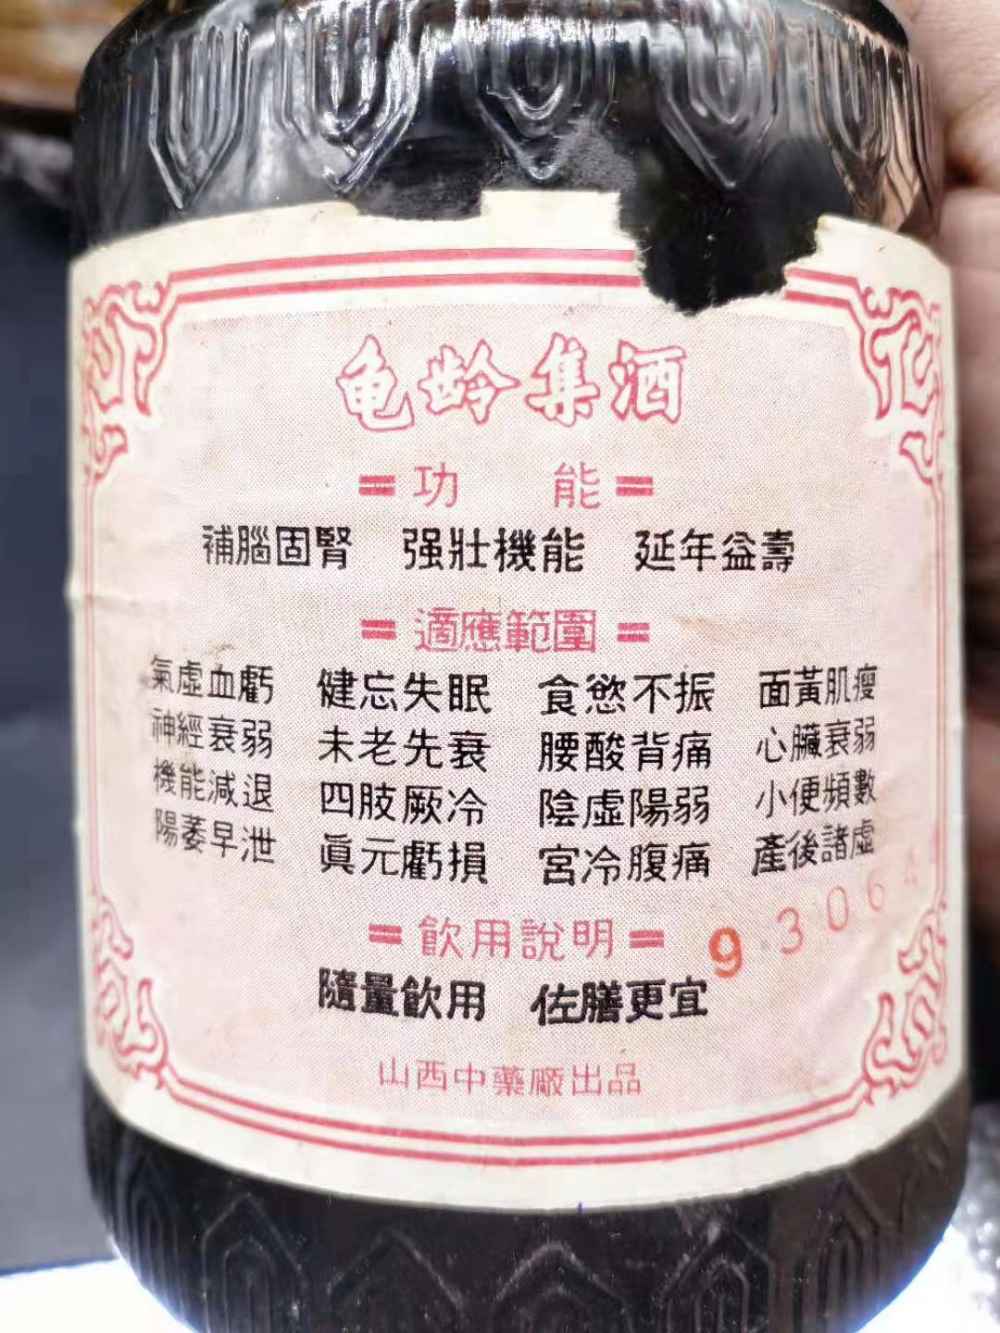 龟龄集酒
=功 能=
補腦固腎 强壯機能 延年益壽
=適應範圍=
氣虛血虧 健忘失眠 食慾不振 面黃肌瘦
神經衰弱 未老先衰 腰酸背痛 心臟衰弱
機能減退 四肢厥冷 陰虛陽弱 小便頻數
陽萎早泄 眞元虧損 宮冷腹痛 產後諸虛
=飲用說明=
9306
隨量飲用 佐膳更宜
山西中藥廠出品